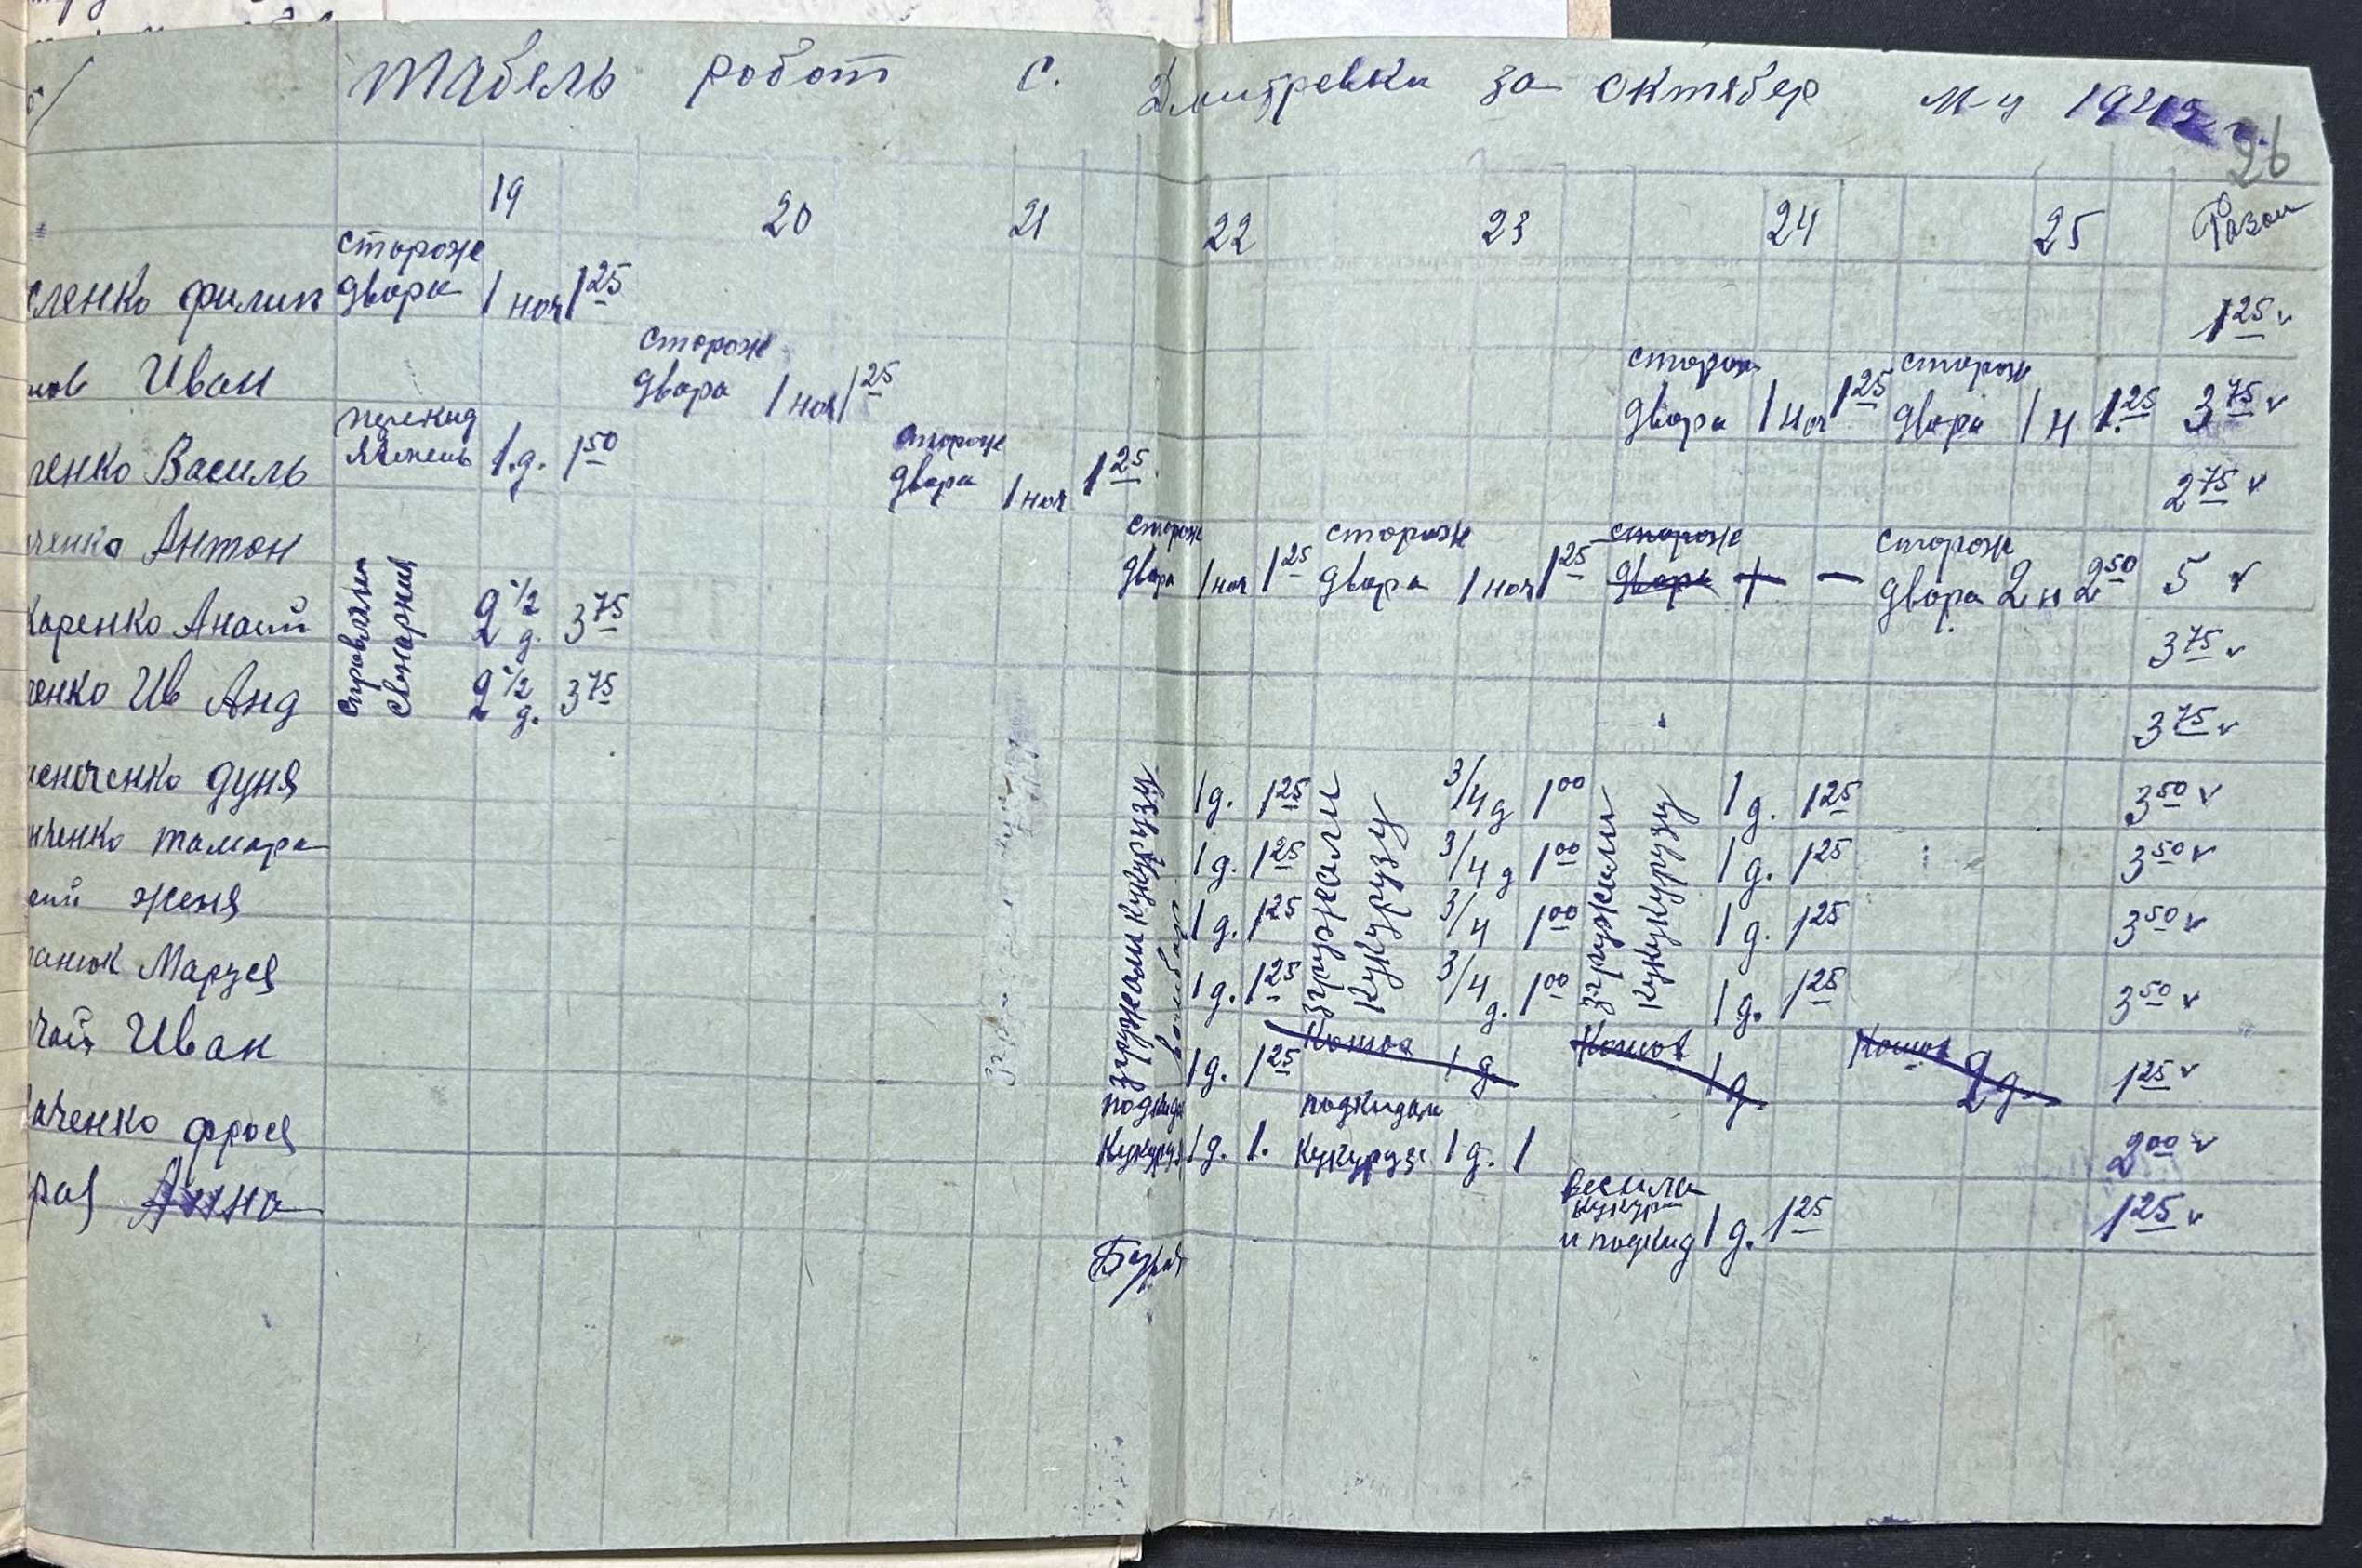 Табель робот с. Дмитревки за октябер м-ц
26
19 20 21 22 23 24 25 Разом
сленко филип стороже двора 1 ноч 1 25 1 25
Иван стороже двора 1 ноч 1 25 сторож двора 1 ноч 1 25 сторож двора 1 н 1.25 3 75
ченко Василь перекид ячмень 1.д. 1 50 стороже двора 1 ноч 1 25 2 75
ченко Антон сторож двора 1 ноч 1 25 сторож двора 1 ноч 1 25 стороже двора + — сторож двора 2 н 2 50 5
каренко Ананий справляли свинарник 2 1/2 д. 3 75 3 75
ченко Ив Анд 2 1/2 д. 3 75 3 75
дуня згружали кукурузу 1 д. 1 25 згружали кукурузу 3/4 д 1 00 згружали кукурузу 1 д. 1 25 3 50
нченко тамара 1 д. 1 25 3/4 д 1 00 1 д. 1 25 3 50
женя 1 д. 1 25 3/4 1 00 1 д. 1 25 3 50
панюк Маруся 1 д. 1 25 3/4 д. 1 00 1 д. 1 25 3 50
чай Иван 1 д. 1 25 1 д. 1 д 2 д. 1 25
аченко фрося подкида кукуруз 1 д. 1. подкидали кукурузу 1 д. 1 2 00
рая Анна весила кукуру и подкид 1 д. 1 25 1 25